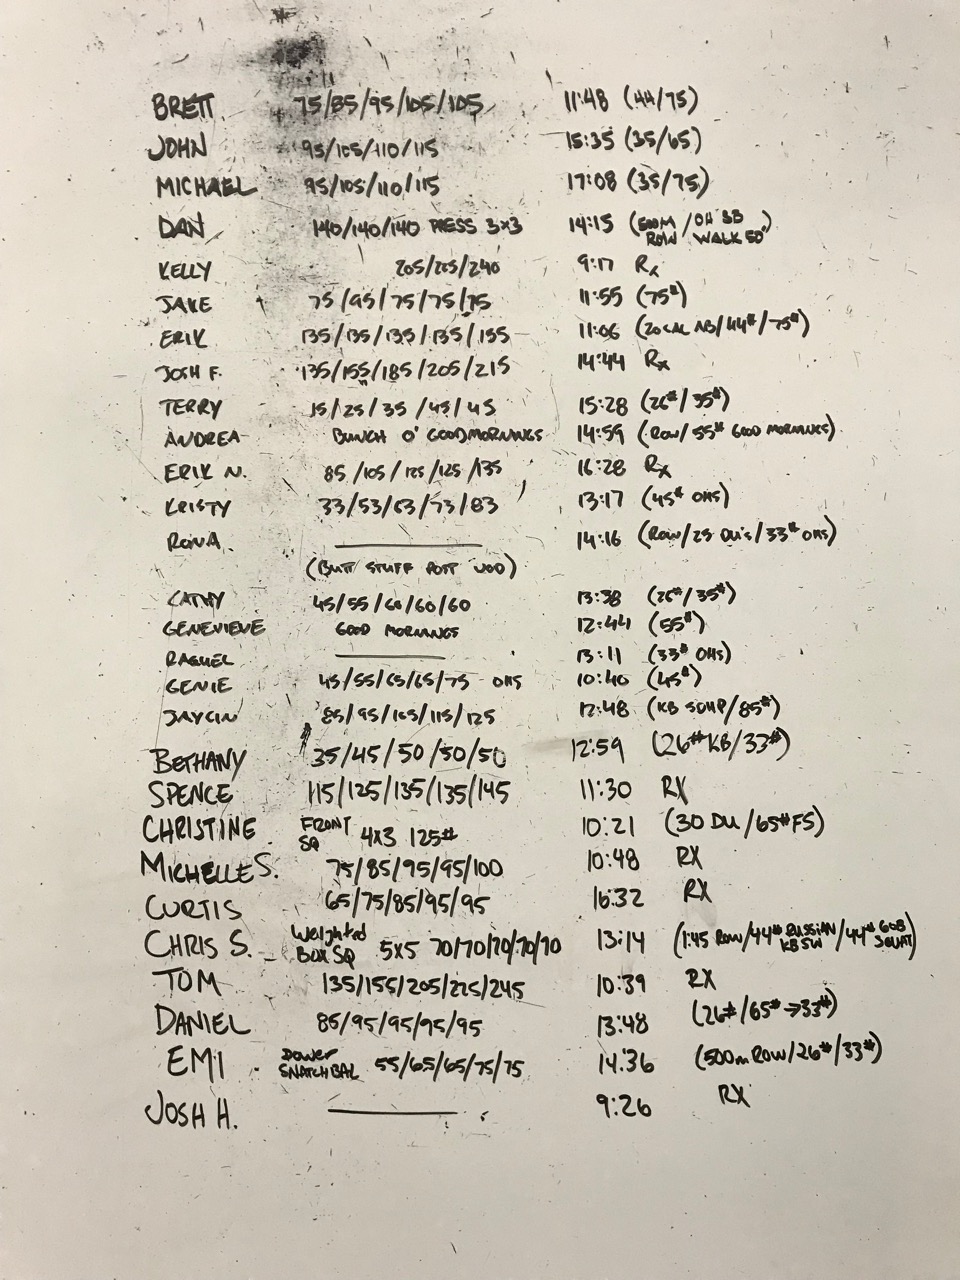 BRETT 75/85/95/105/105 11:48 (44/75)
JOHN 95/105/110/115 15:35 (35/65)
MICHAEL 95/105/110/115 17:08 (35/75)
DAN 140/140/140 PRESS 3x3 14:15 (500M ROW / OH BB WALK 50')
KELLY 205/225/240 9:17 Rx
JAKE 75/95/75/75/75 11:55 (75#)
ERIK 135/135/135/135/135 11:06 (20CAL AB/44#/75#)
JOSH F. 135/155/185/205/215 14:44 Rx
TERRY 15/25/35/45/45 15:28 (26#/35#)
ANDREA BUNCH O' GOODMORNINGS 14:59 (ROW/55# GOOD MORNINGS)
ERIK N. 85/105/125/125/135 16:28 Rx
KRISTY 33/53/63/73/83 13:17 (45# OHS)
RONA 14:16 (ROW/25 DU's/33# OHS)
(BUTT STUFF POST WOD)
CATHY 45/55/60/60/60 13:38 (26#/35#)
GENEVIEVE GOOD MORNINGS 12:44 (55#)
RAQUEL 13:11 (33# OHS)
GENIE 45/55/65/65/75 OHS 10:40 (45#)
JAYCIN 85/95/105/115/125 12:48 (KB SDHP/85#)
BETHANY 35/45/50/50/50 12:59 (26#KB/33#)
SPENCE 115/125/135/135/145 11:30 RX
CHRISTINE FRONT SQ 4x3 125# 10:21 (30 DU/65# FS)
MICHELLE S. 75/85/95/95/100 10:48 RX
CURTIS 65/75/85/95/95 16:32 RX
CHRIS S. Weighted BOX SQ 5x5 70/70/70/70/70 13:14 (1:45 ROW/44# RUSSIAN KB SW/44# GOB SQUAT)
TOM 135/155/205/225/245 10:39 RX
DANIEL 85/95/95/95/95 13:48 (26#/65#→33#)
EMI POWER SNATCH BAL 55/65/65/75/75 14:36 (500m ROW/26#/33#)
JOSH H. 9:26 RX